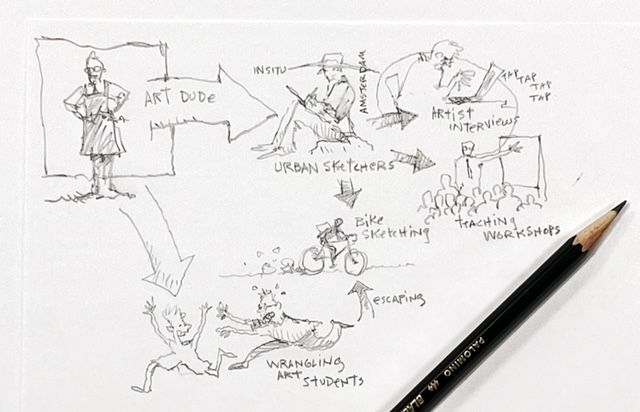 ART DUDE
INSITU
AMSTERDAM
TAP TAP
TAP
TAP
ARTIST
INTERVIEWS
URBAN SKETCHERS
TEACHING
WORKSHOPS
BIKE
SKETCHING
ESCAPING
WRANGLING
ART
STUDENTS
PALOMINO
BLA